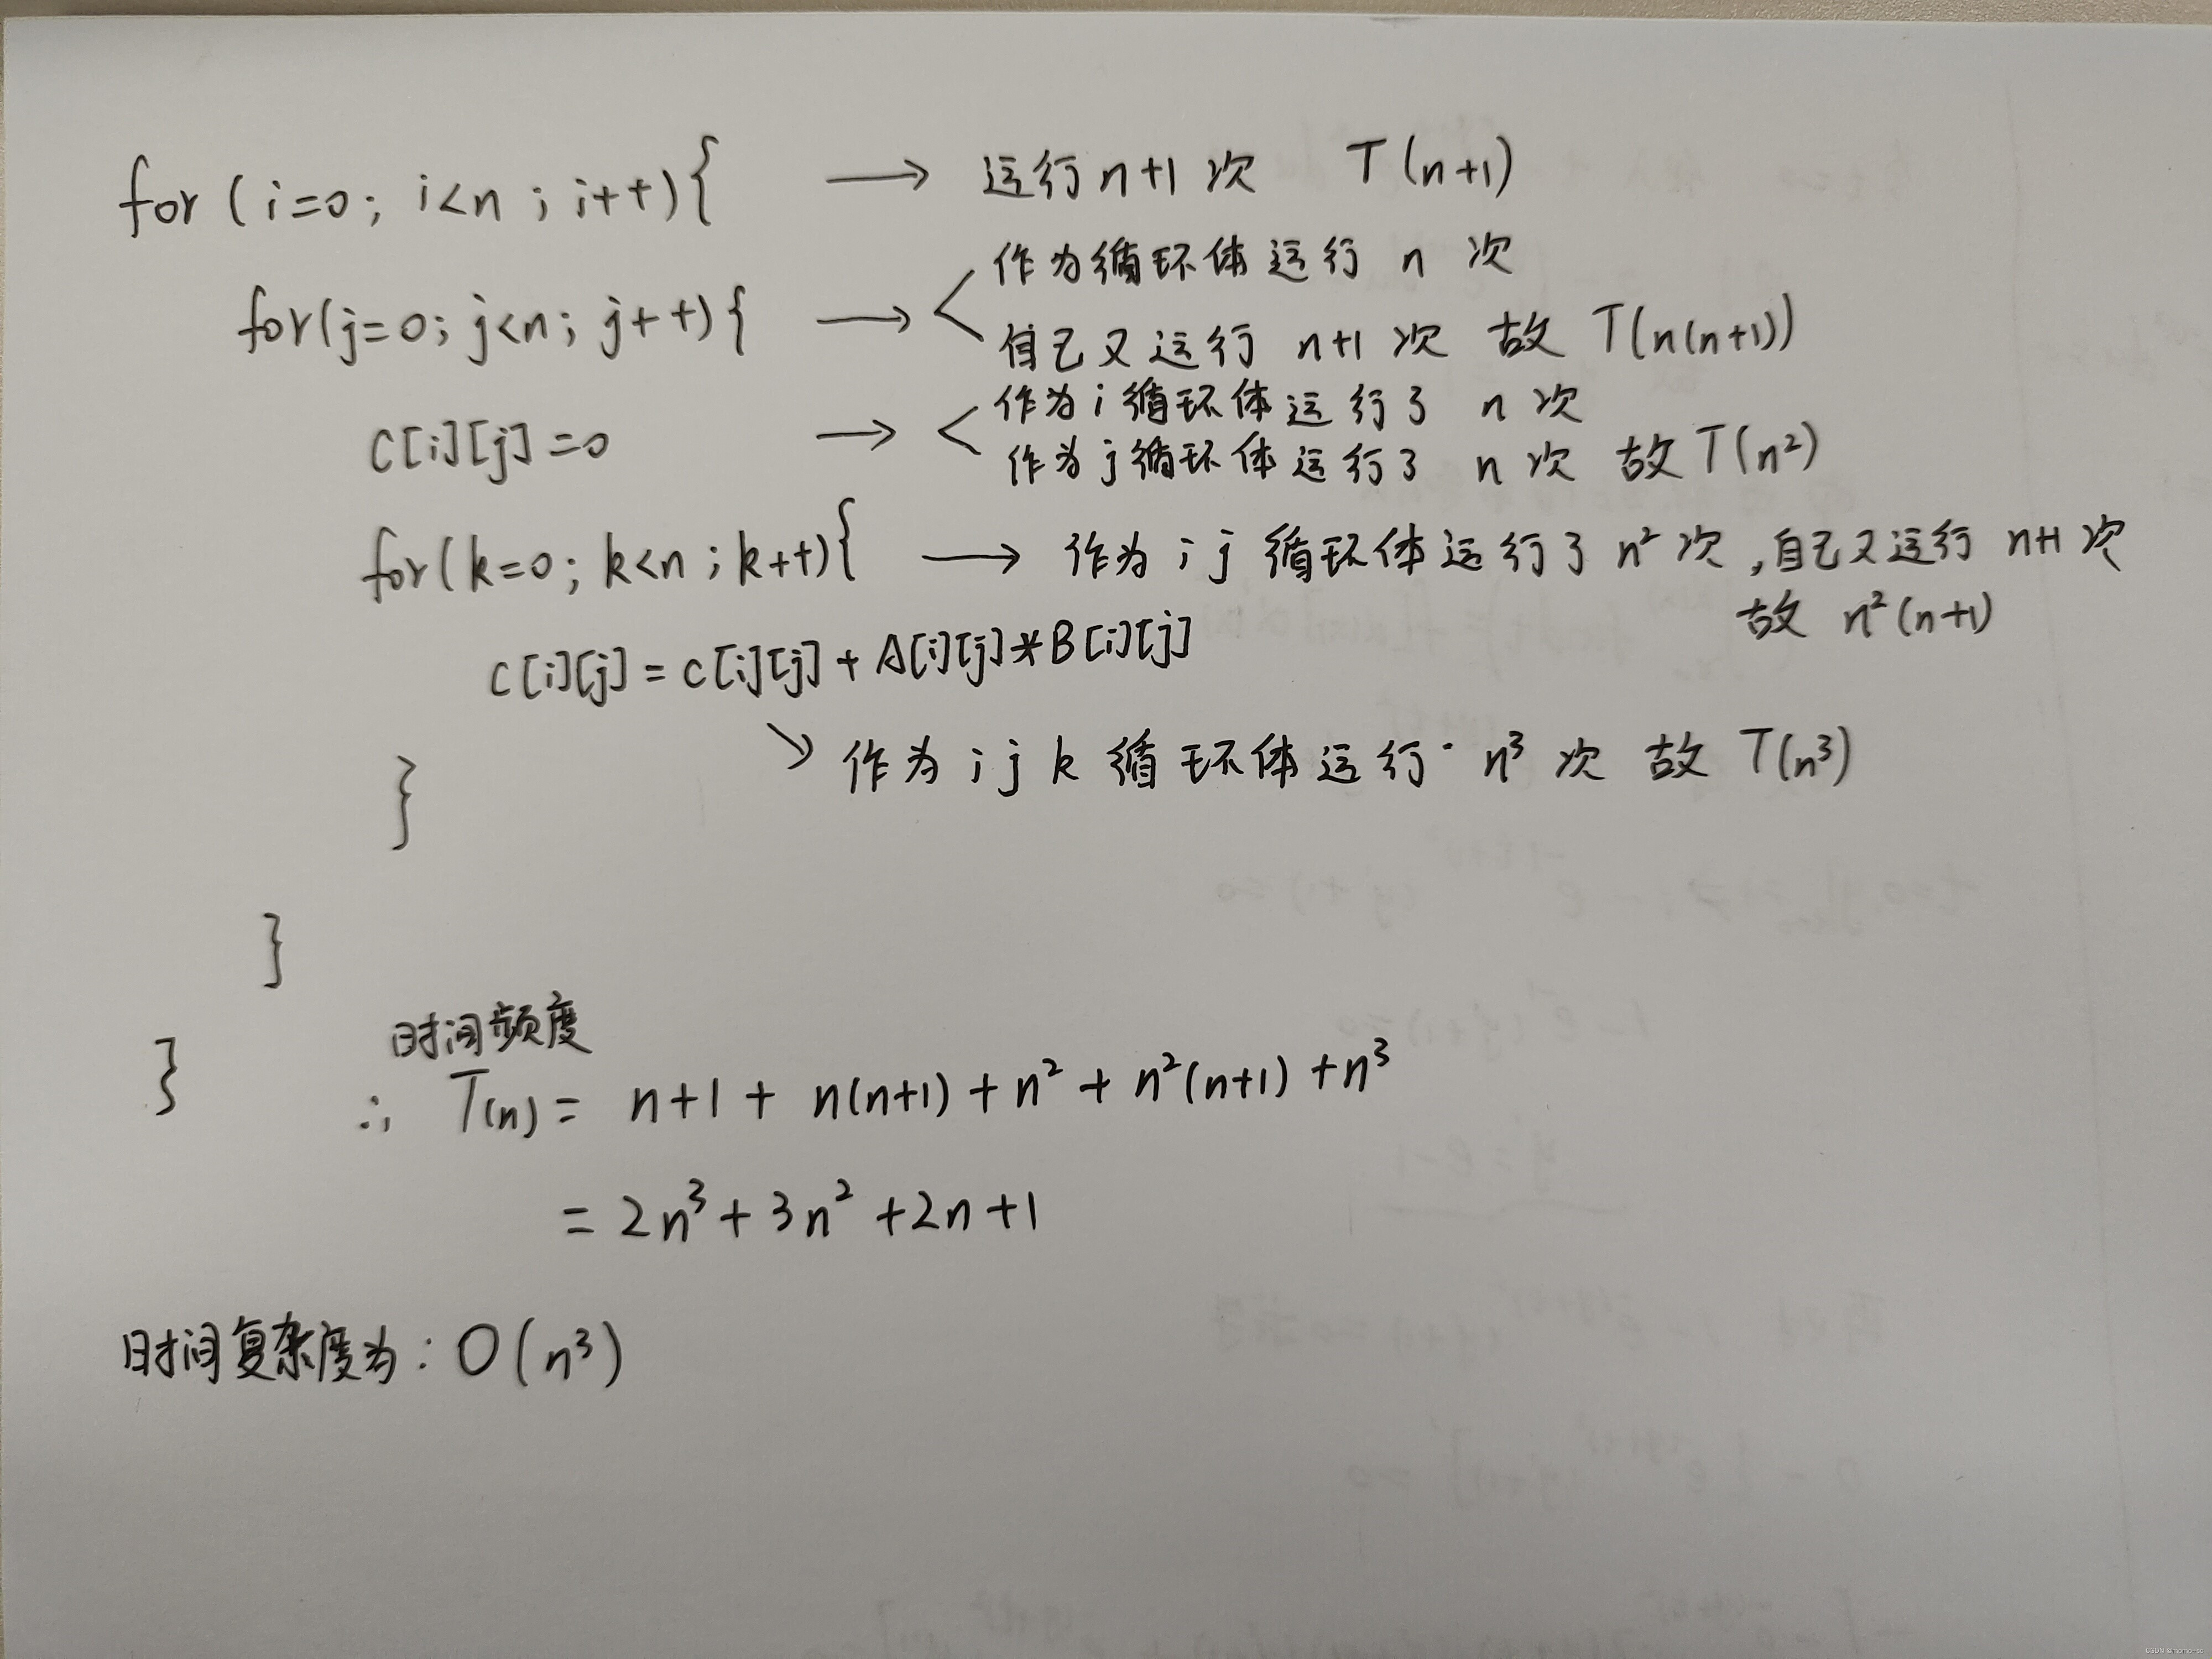 for (i=0; i<n; i++){ → 运行 n+1 次 T(n+1)
作为循环体运行 n 次
for(j=0; j<n; j++){ → <
自己又运行 n+1 次 故 T(n(n+1))
作为 i 循环体运行了 n 次
C[i][j]=0 → <
作为 j 循环体运行了 n 次 故 T(n²)
for(k=0; k<n; k++){ → 作为 i j 循环体运行了 n² 次,自己又运行 n+1 次
故 n²(n+1)
C[i][j] = c[i][j] + A[i][j]*B[i][j]
↘ 作为 i j k 循环体运行 n³ 次 故 T(n³)
}
}
时间频度
}
∴ T(n) = n+1 + n(n+1) + n² + n²(n+1) + n³
= 2n³ + 3n² + 2n + 1
时间复杂度为: O(n³)